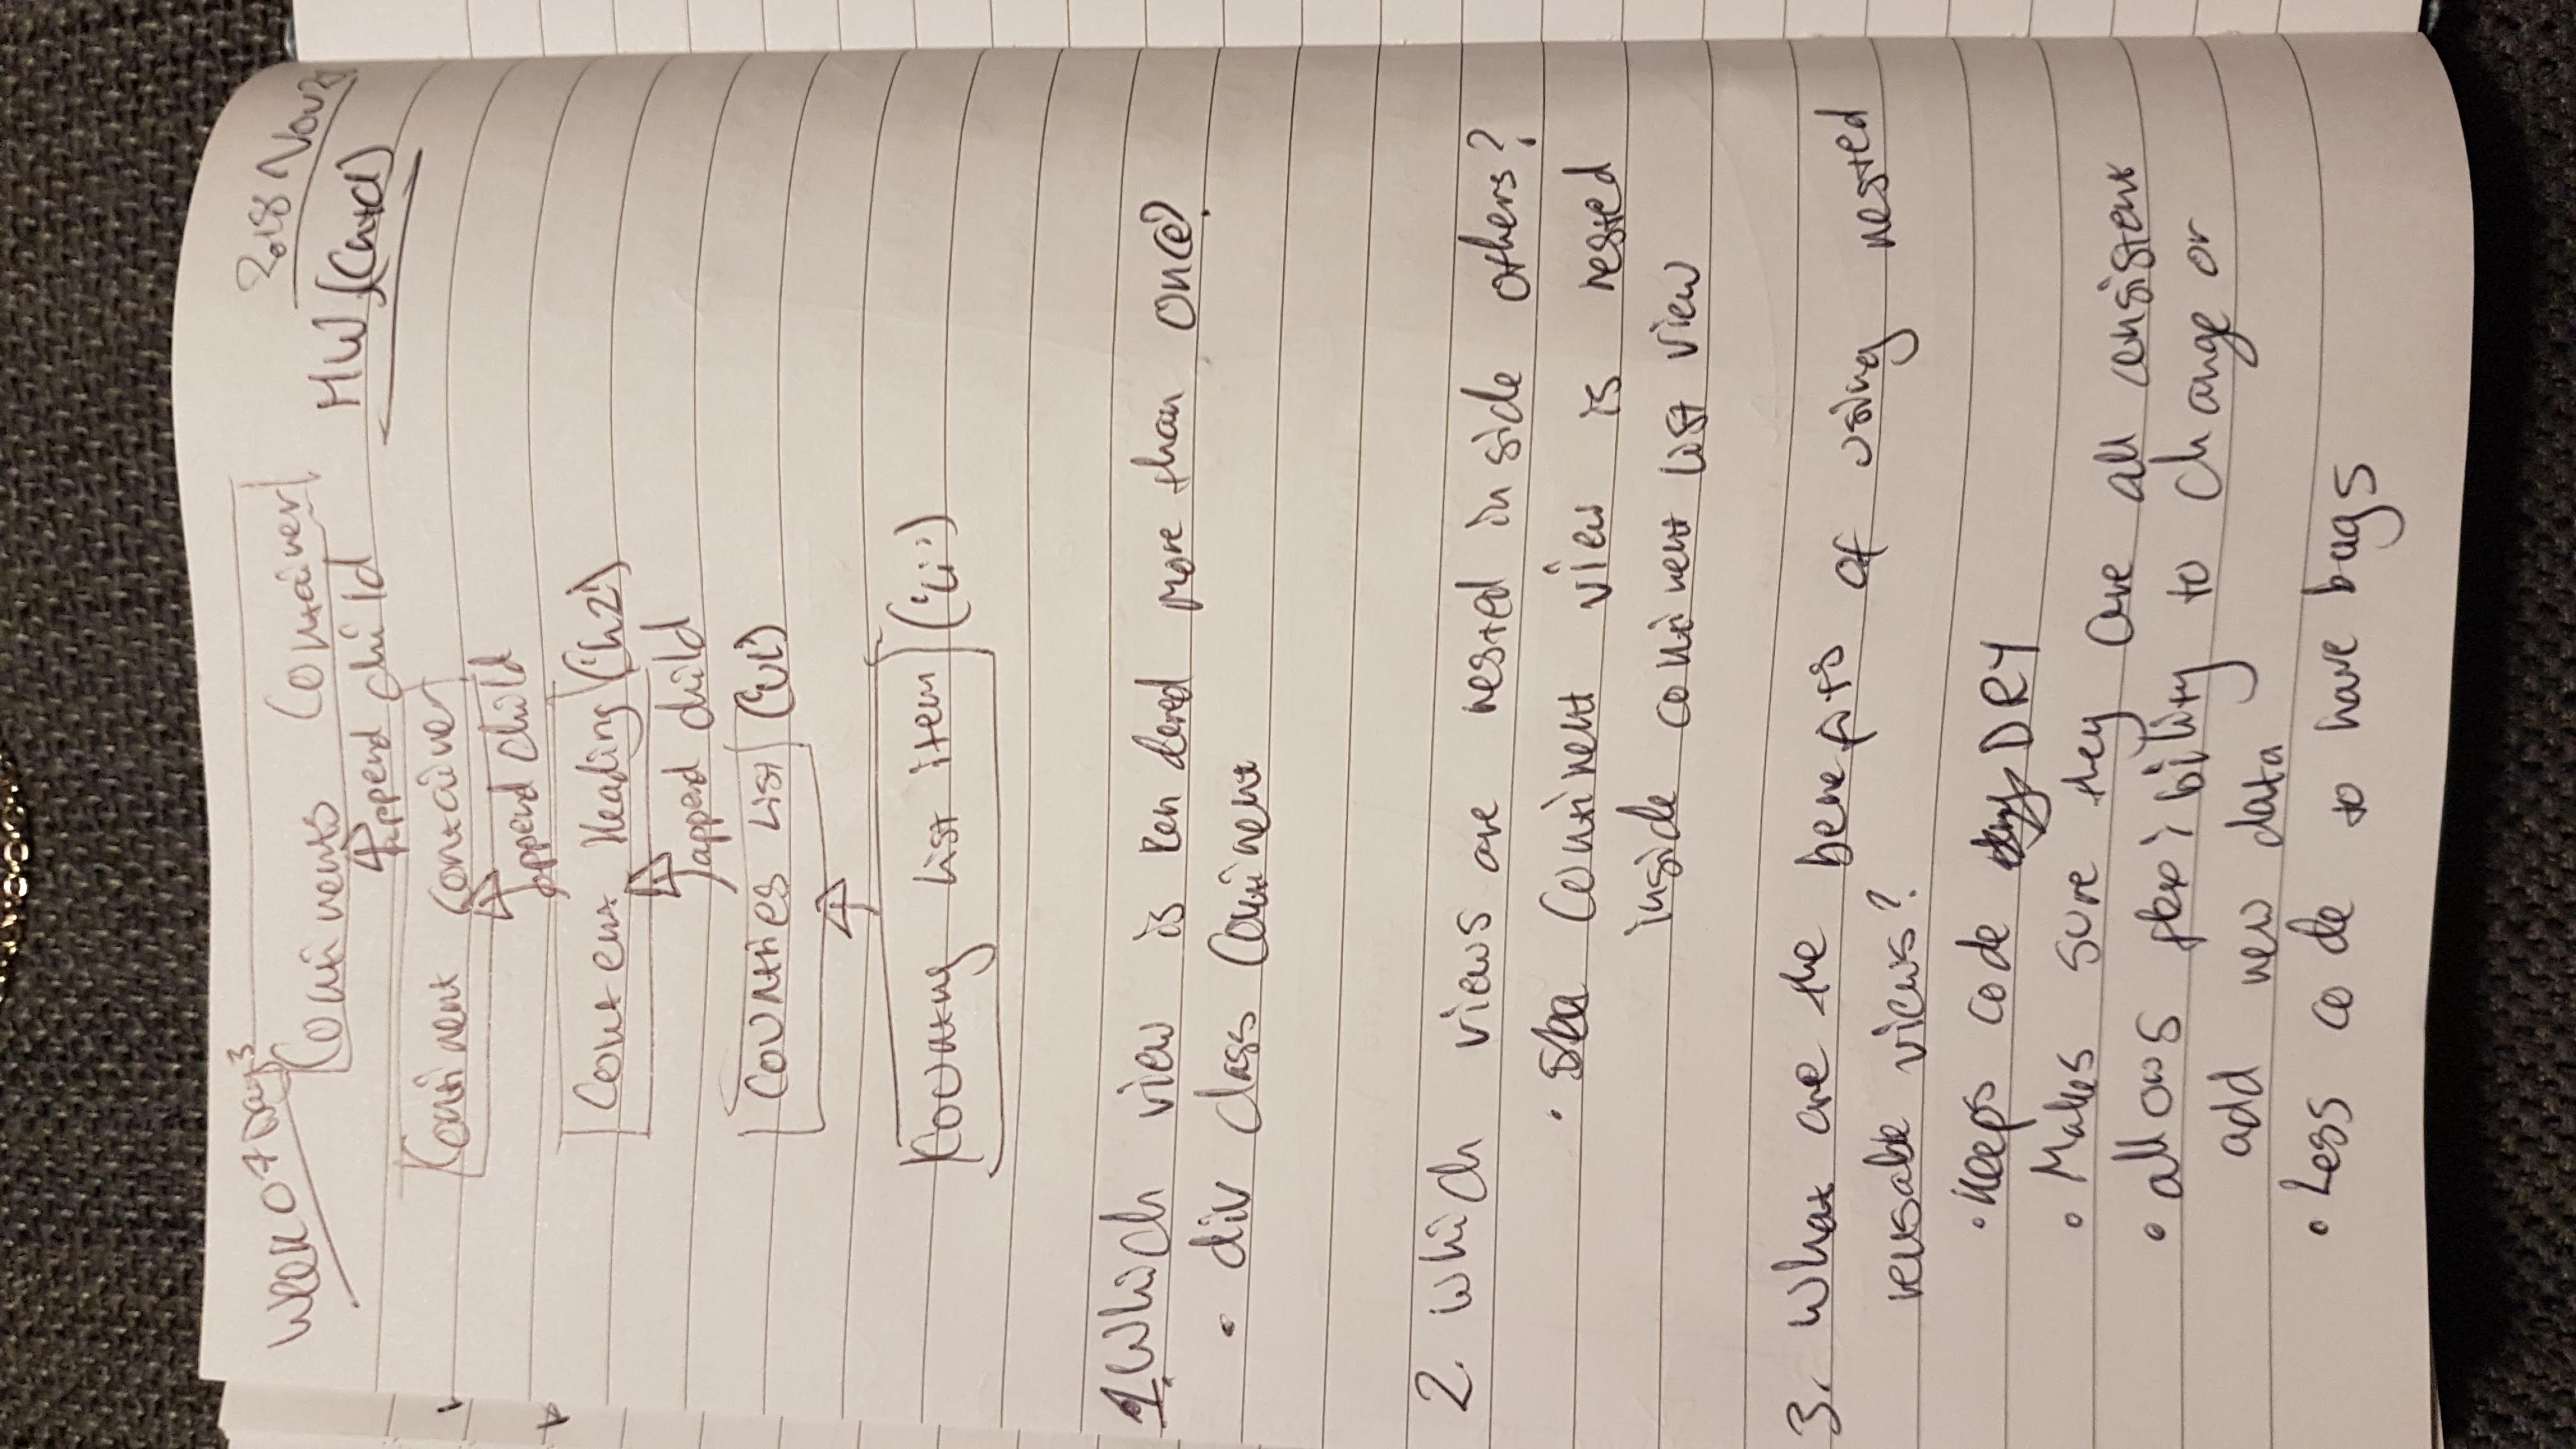 Week 07 Day 3
2018 Nov
Continents Container
HW (Cntd)
Append child
Continent container
append child
Content Heading ('h2')
append child
Countries List ('ul')
Country List item ('Li')
1. Which view is Rendered more than once?
• div class Continent
2. Which views are nested inside others?
• Continent view is nested
inside continent list view
3. What are the benefits of using nested
reusable views?
• Keeps code DRY
• Makes sure they are all consistent
• allows flexibility to change or
add new data
• Less code to have bugs